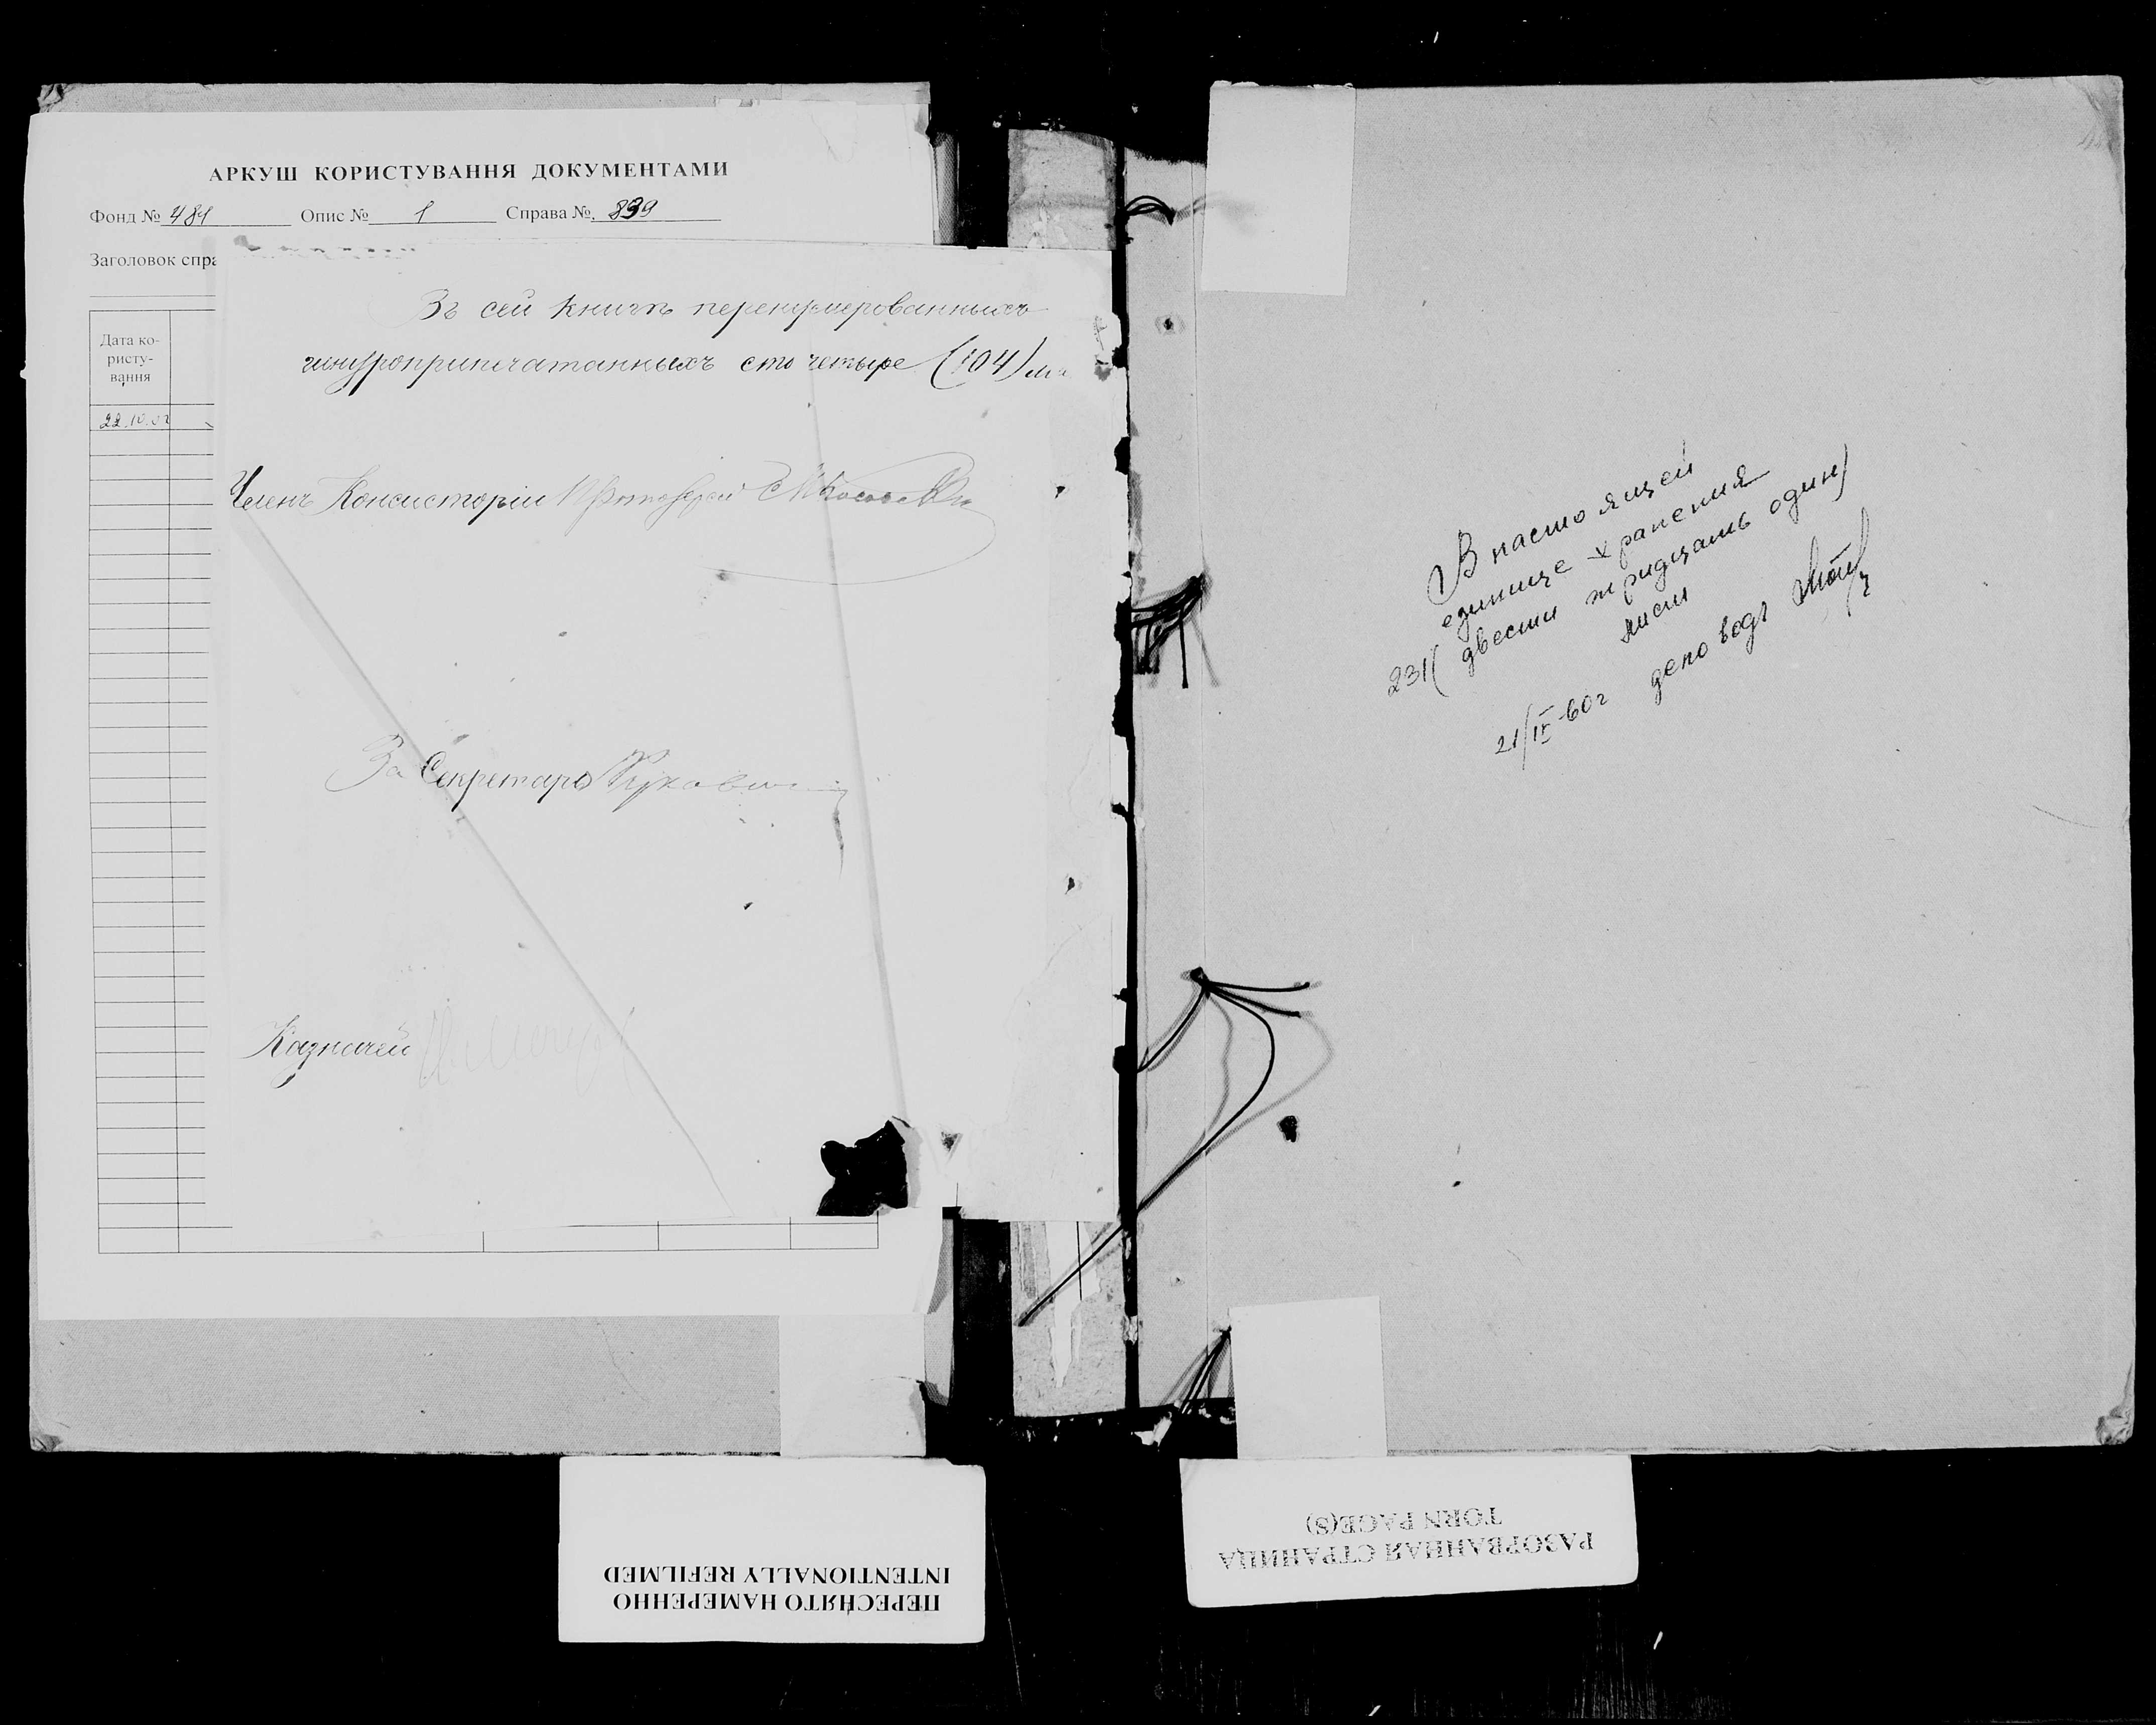 АРКУШ КОРИСТУВАННЯ ДОКУМЕНТАМИ
Фонд № 481 Опис № 1 Справа № 839
Заголовок спра
Дата ко-
ристу-
вання
22.10.02
Въ сей книгѣ перенумерованныхъ
шнуроприпечатанныхъ сто четыре (104)
Членъ Консисторіи Протоіерей
За Секретаря
Казначей
В настоящей
единице хранения
231 (двести тридцать один)
лист
21/IV-60г деловод
ПЕРЕСНЯТО НАМЕРЕННО
INTENTIONALLY REFILMED
РАЗОРВАННАЯ СТРАНИЦА
TORN PAGE(S)